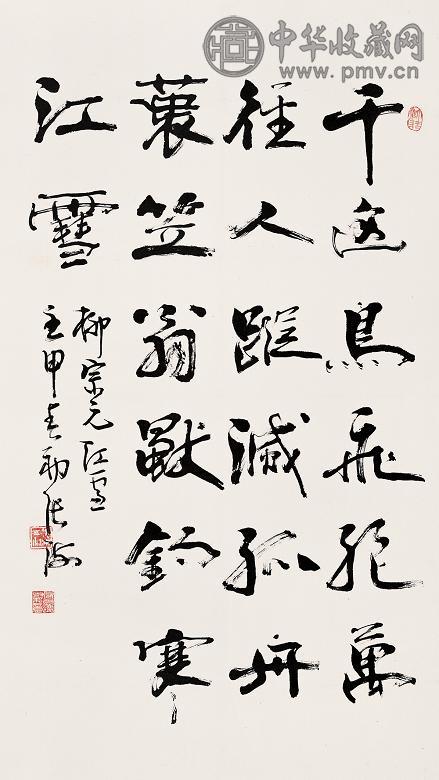 中华收藏网
www.pmv.cn
千山鳥飛絕萬
徑人蹤滅孤舟
蓑笠翁獨釣寒
江雪
柳宗元江雪
張海